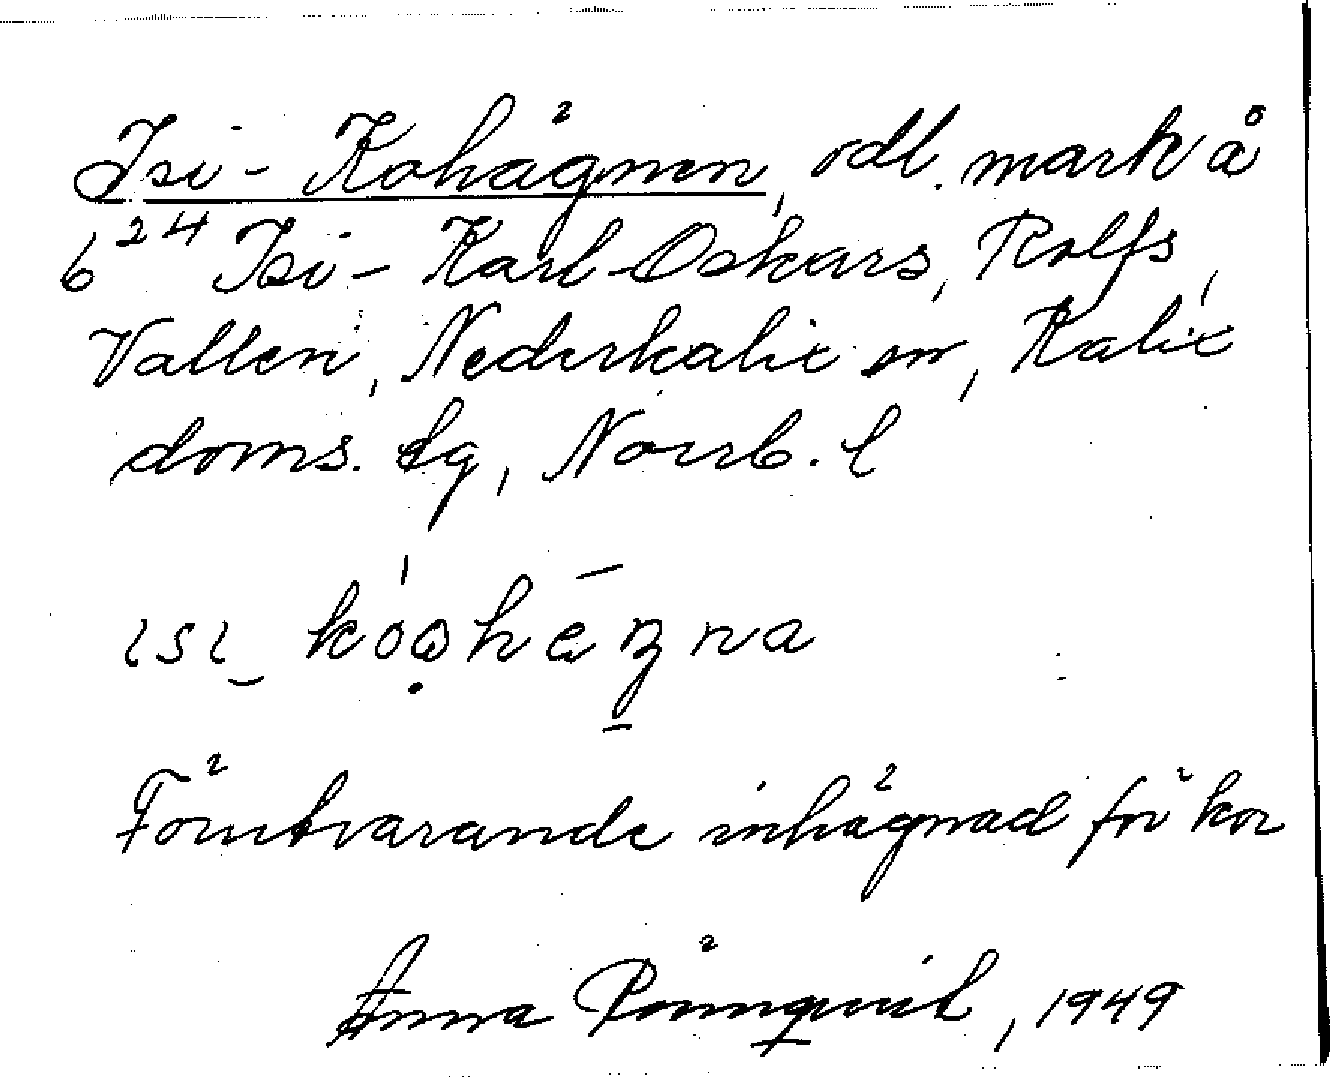 Isi-Kohägnen, odl. mark å
6²⁴ Isi-Karl-Oskars, Rolfs,
Vallen, Nederkalix sn, Kalix
doms. lg, Norrb. l
Förutvarande inhägnad för kor
Anna Rönnqvist, 1949